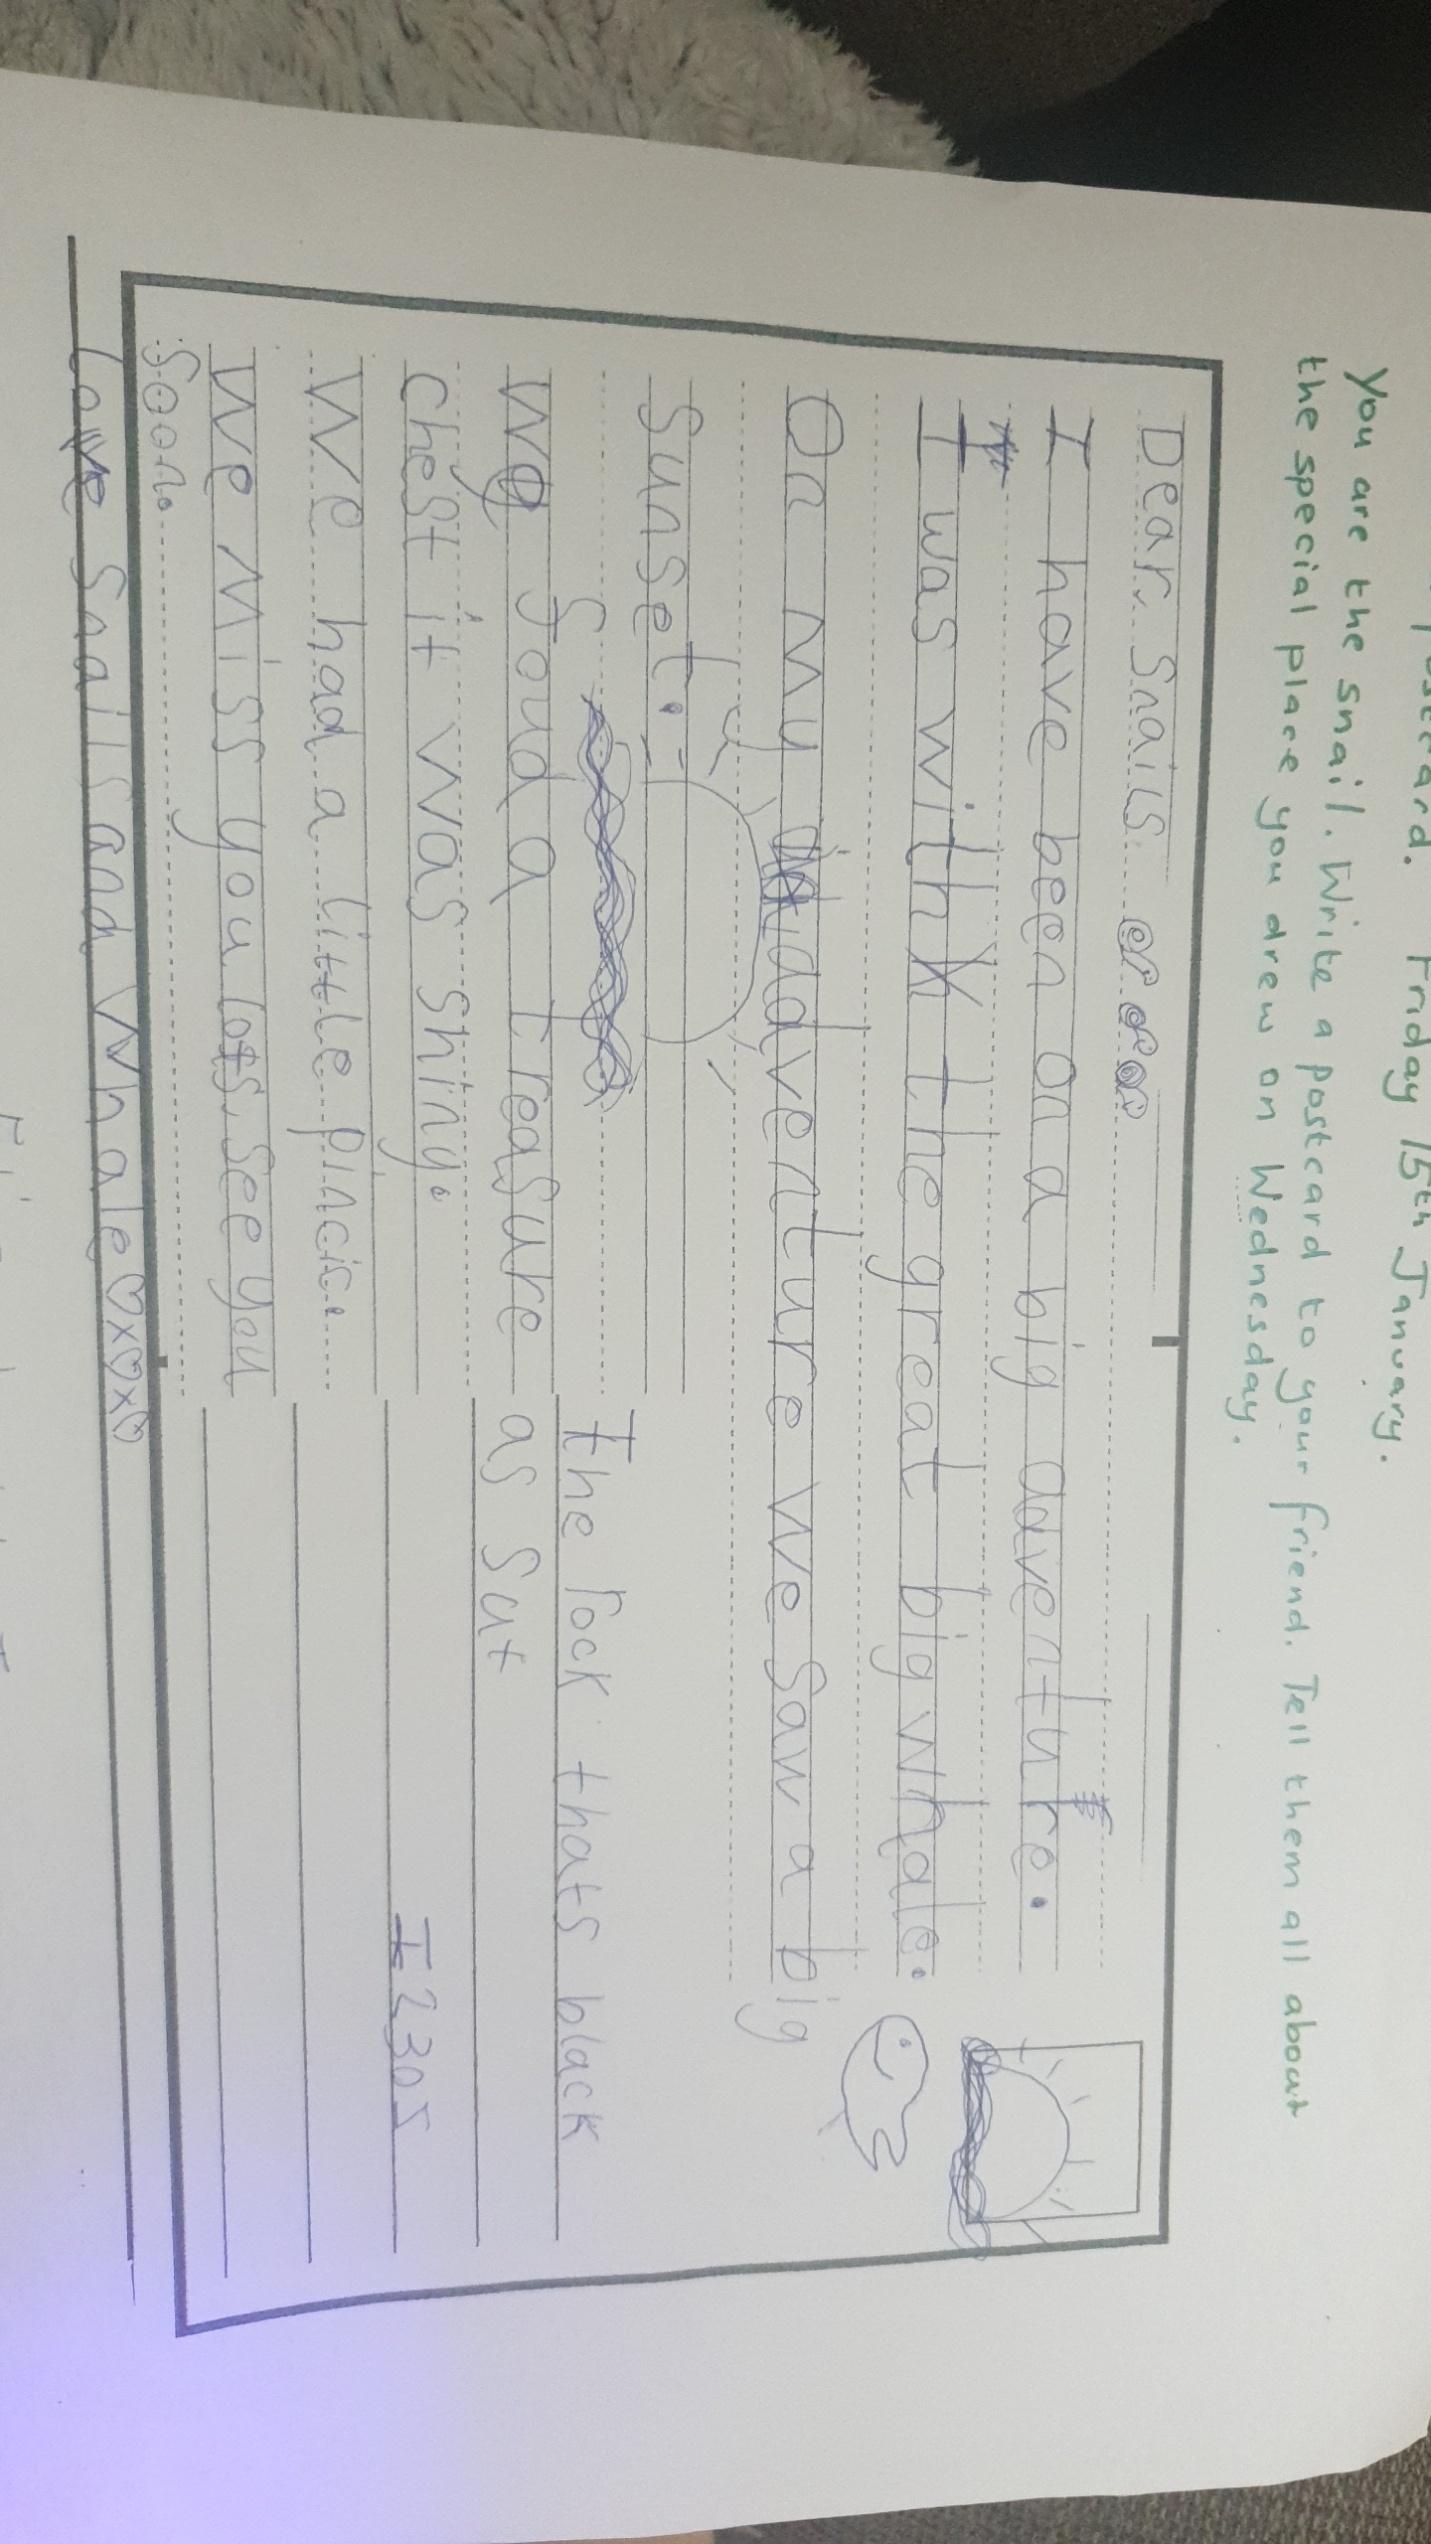 postcard. Friday 15th January.
You are the snail. Write a postcard to your friend. Tell them all about
the special place you drew on Wednesday.
Dear Snails
I have been on a big adventure.
I was with the great big whale.
On my adventure we saw a big
sunset.
We foud a treasure
chest it was shing.
We had a little pincic.
We miss you lots see you
soon.
the rock thats black
as sut
I 2305
Love Snail and Whale ♡x♡x♡